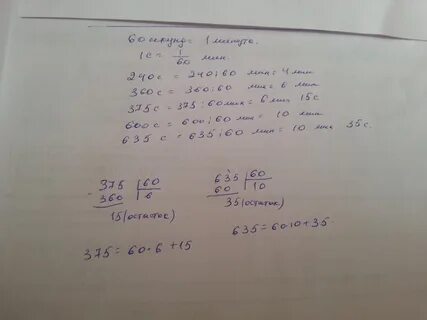 60 секунд = 1 минута.
1с = 1/60 мин.
240с = 240:60 мин = 4 мин
360с = 360:60 мин = 6 мин
375с = 375:60 мин = 6 мин 15с
600с = 600:60 мин = 10 мин
635с = 635:60 мин = 10 мин 35с.
375 60
- 360 6
15 (остаток)
375 = 60·6 + 15
635 60
60 10
35 (остаток)
635 = 60·10 + 35.